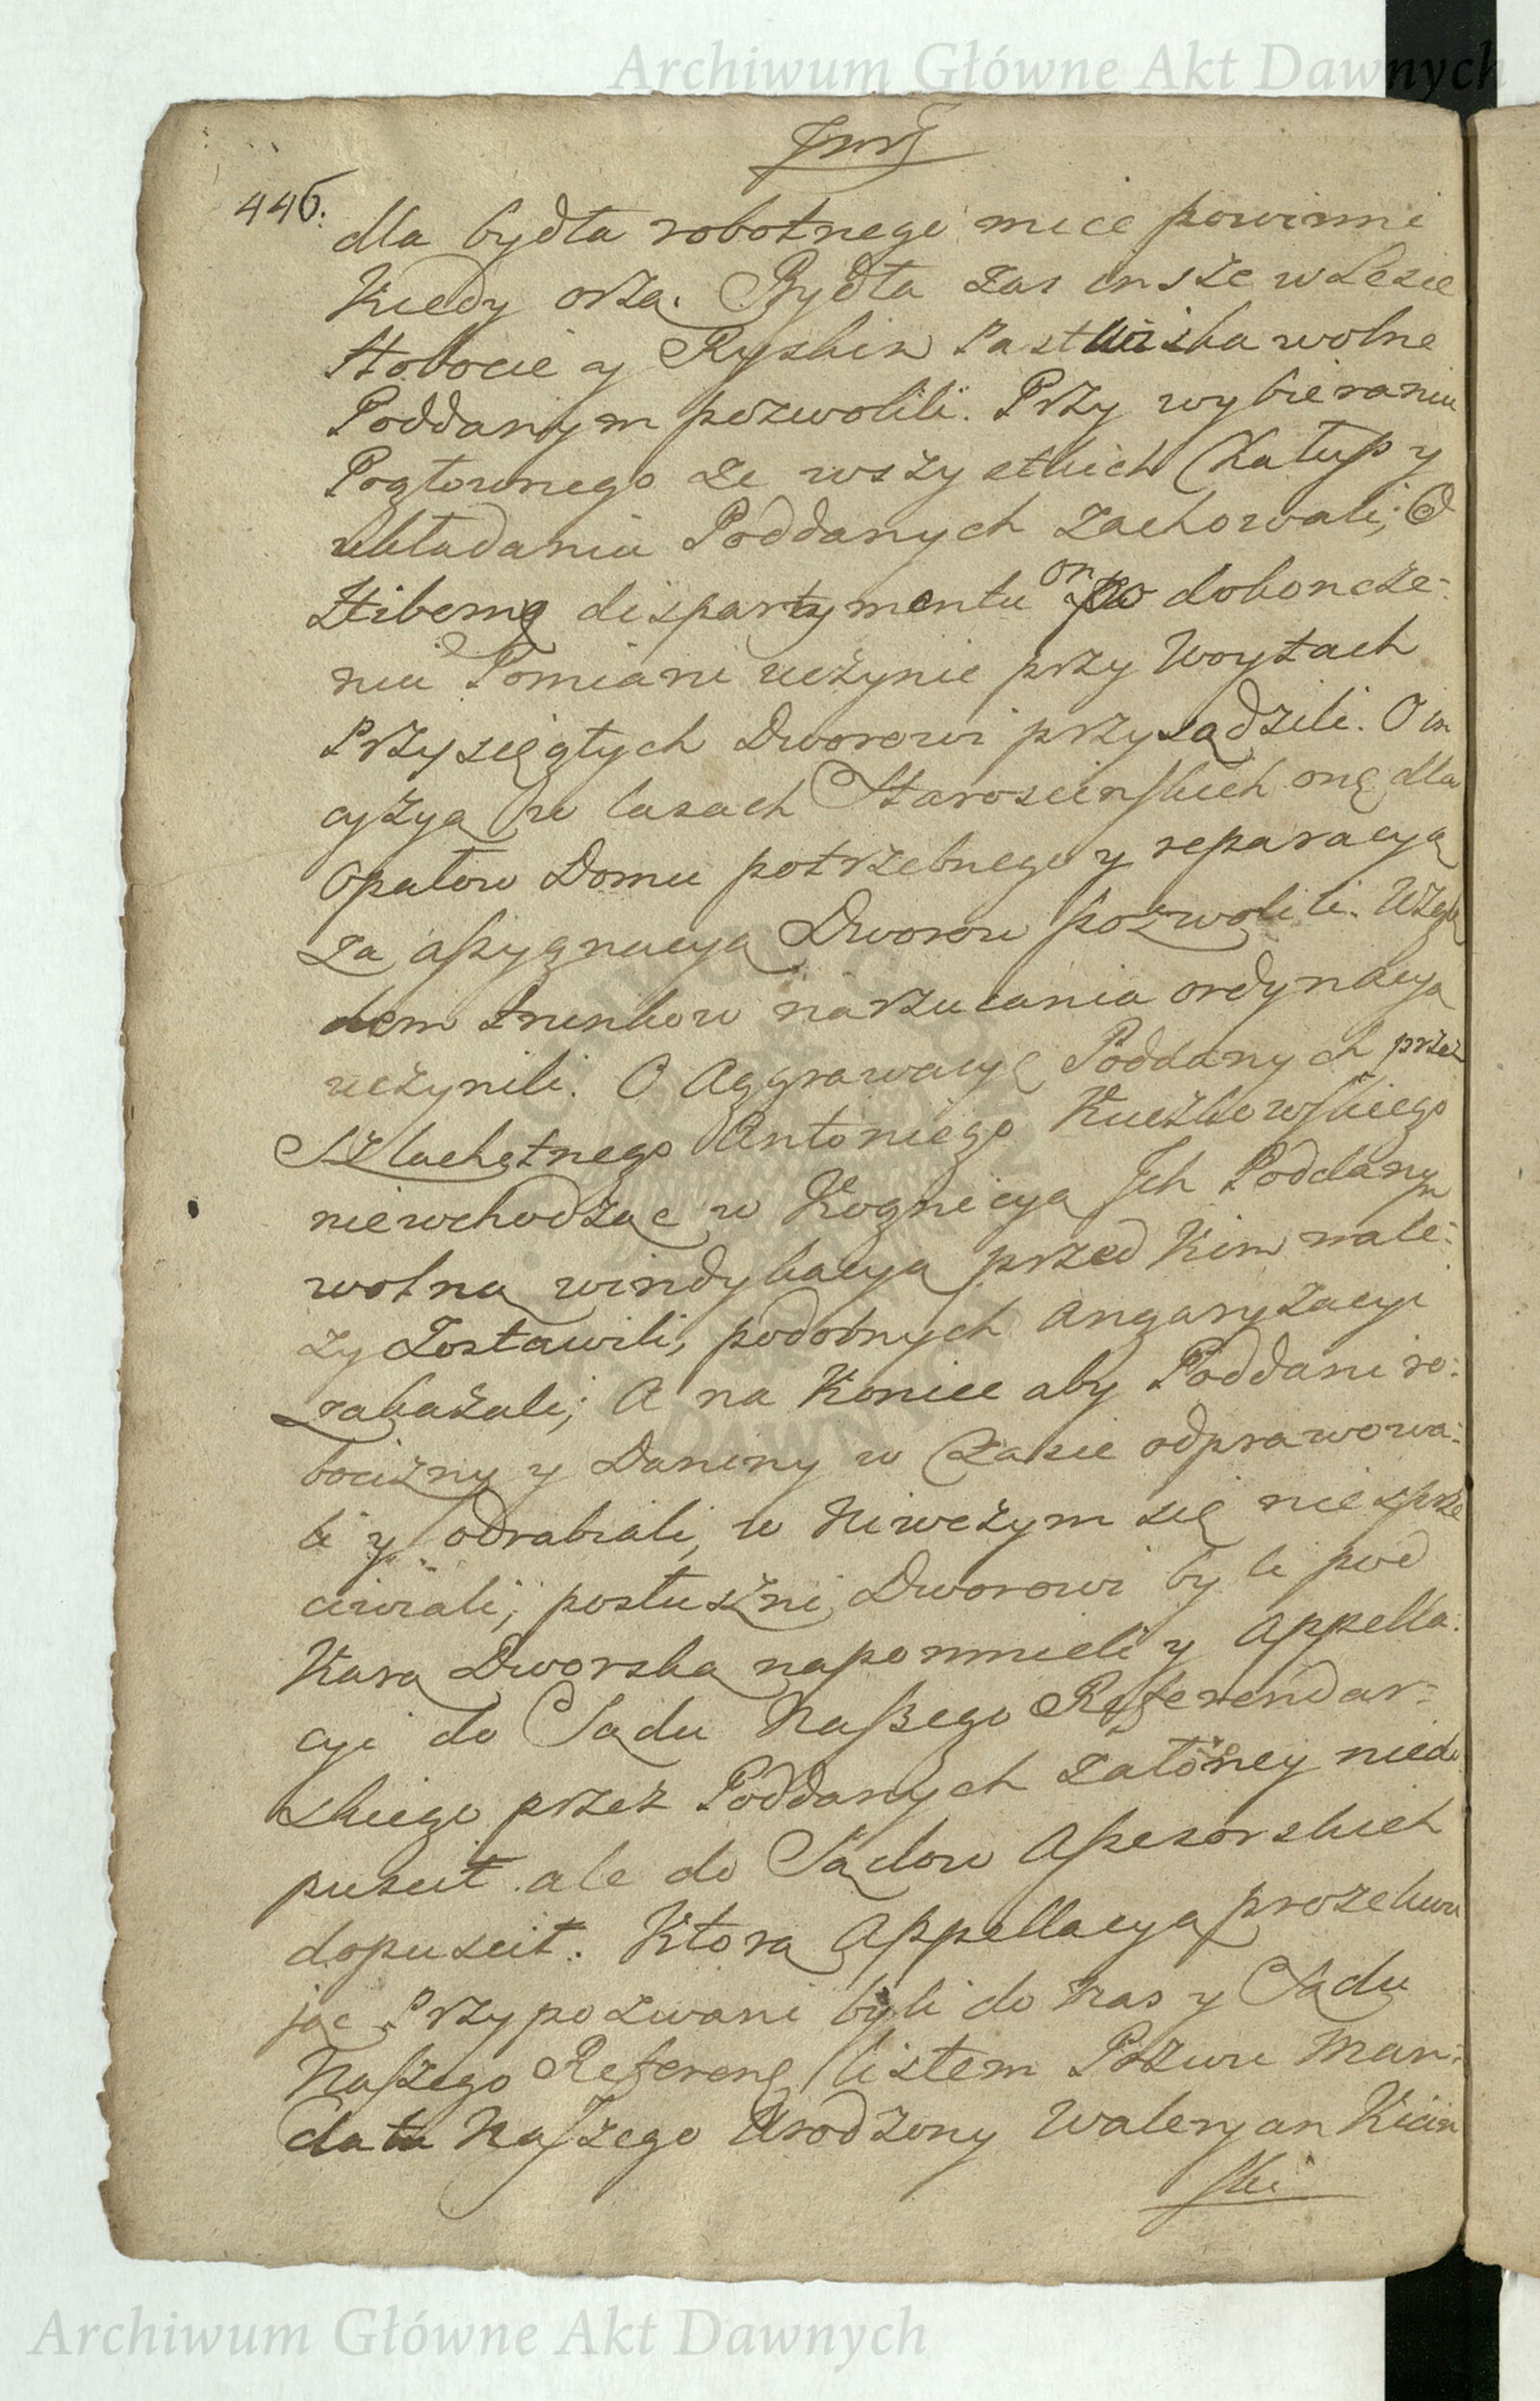 Archiwum Główne Akt Dawnych
446.
dla bydła robotnego miec powinni
Kiedy orzą. Bydła zas insze w Lesie
Stobocie y Ryskin Pastwiska wolne
Poddanym pozwolili. Przy wybieraniu
Pogłownego ze wszystkich Chałup y
układaniu Poddanych zachowali; O
Hibernę dispartymentu on po dokoncze=
niu Pomiani uczynie przy Woytach
Przysięgłych Dworowi przysądzili. O in
cyzyą w lasach Starościnskich onę dla
Opałow Domu potrzebnego y reparacyą
za assygnacyą Dworow pozwolili. Wzglę
dem trunkow narzucania ordynacyą
uczynili. O Aggrawacyę Poddanych przez
Szlachetnego Antoniego Kuczkowskiego
niewchodząc w Kognicyą Ich Poddanym
wolną windykacyą przed Kim nale=
zy Zostawili, podobnych angaryzacyi
zakazali; A na Koniec aby Poddani ro=
bocizny y Daniny w Czasie odprawowa=
li y odrabiali, w Niwczym się nie sprze
ciwiali, posłuszni Dworowi byli pod
Karą Dworską napomnieli y Appella=
cyi do Sądu Naszego Referendar=
skiego przez Poddanych załoźney niedo
puscił ale do Sądow Assesorskich
dopuscił. Ktorą Appellacyą prozekwu
jąc Przypozwani byli do Nas y Sądu
Naszego Referen listem Pozwu Man=
datu Naszego Urodzony Waleryan Kicin
ski
Archiwum Główne Akt Dawnych